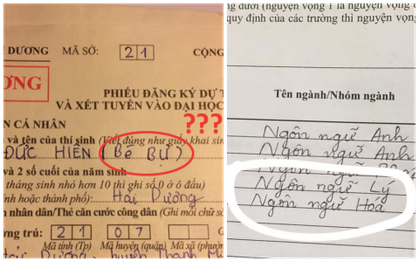 DƯƠNG MÃ SỐ: 2 1 CỘNG
ƠNG
PHIẾU ĐĂNG KÝ DỰ T
VÀ XÉT TUYỂN VÀO ĐẠI HỌC
???
IN CÁ NHÂN
và tên của thí sinh (Viết đúng như giấy khai sin
ĐỨC HIỂN (Bé Bự)
và 2 số cuối của năm sinh
tháng sinh nhỏ hơn 10 thì ghi số 0 ở ô đầu)
tỉnh hoặc thành phố): Hải Dương
n nhân dân/Thẻ căn cước công dân (Ghi mỗi chữ số
trú: 2 1 0 7
Mã tỉnh (Tp) Mã huyện (quận) Mã xã (phườn
dưới (nguyện vọng 1 là nguyện vọng
quy định của các trường thì nguyện vọng
Tên ngành/Nhóm ngành
Ngôn ngữ Anh
Ngôn ngữ Anh
Ngôn ngữ Lý
Ngôn ngữ Hoá